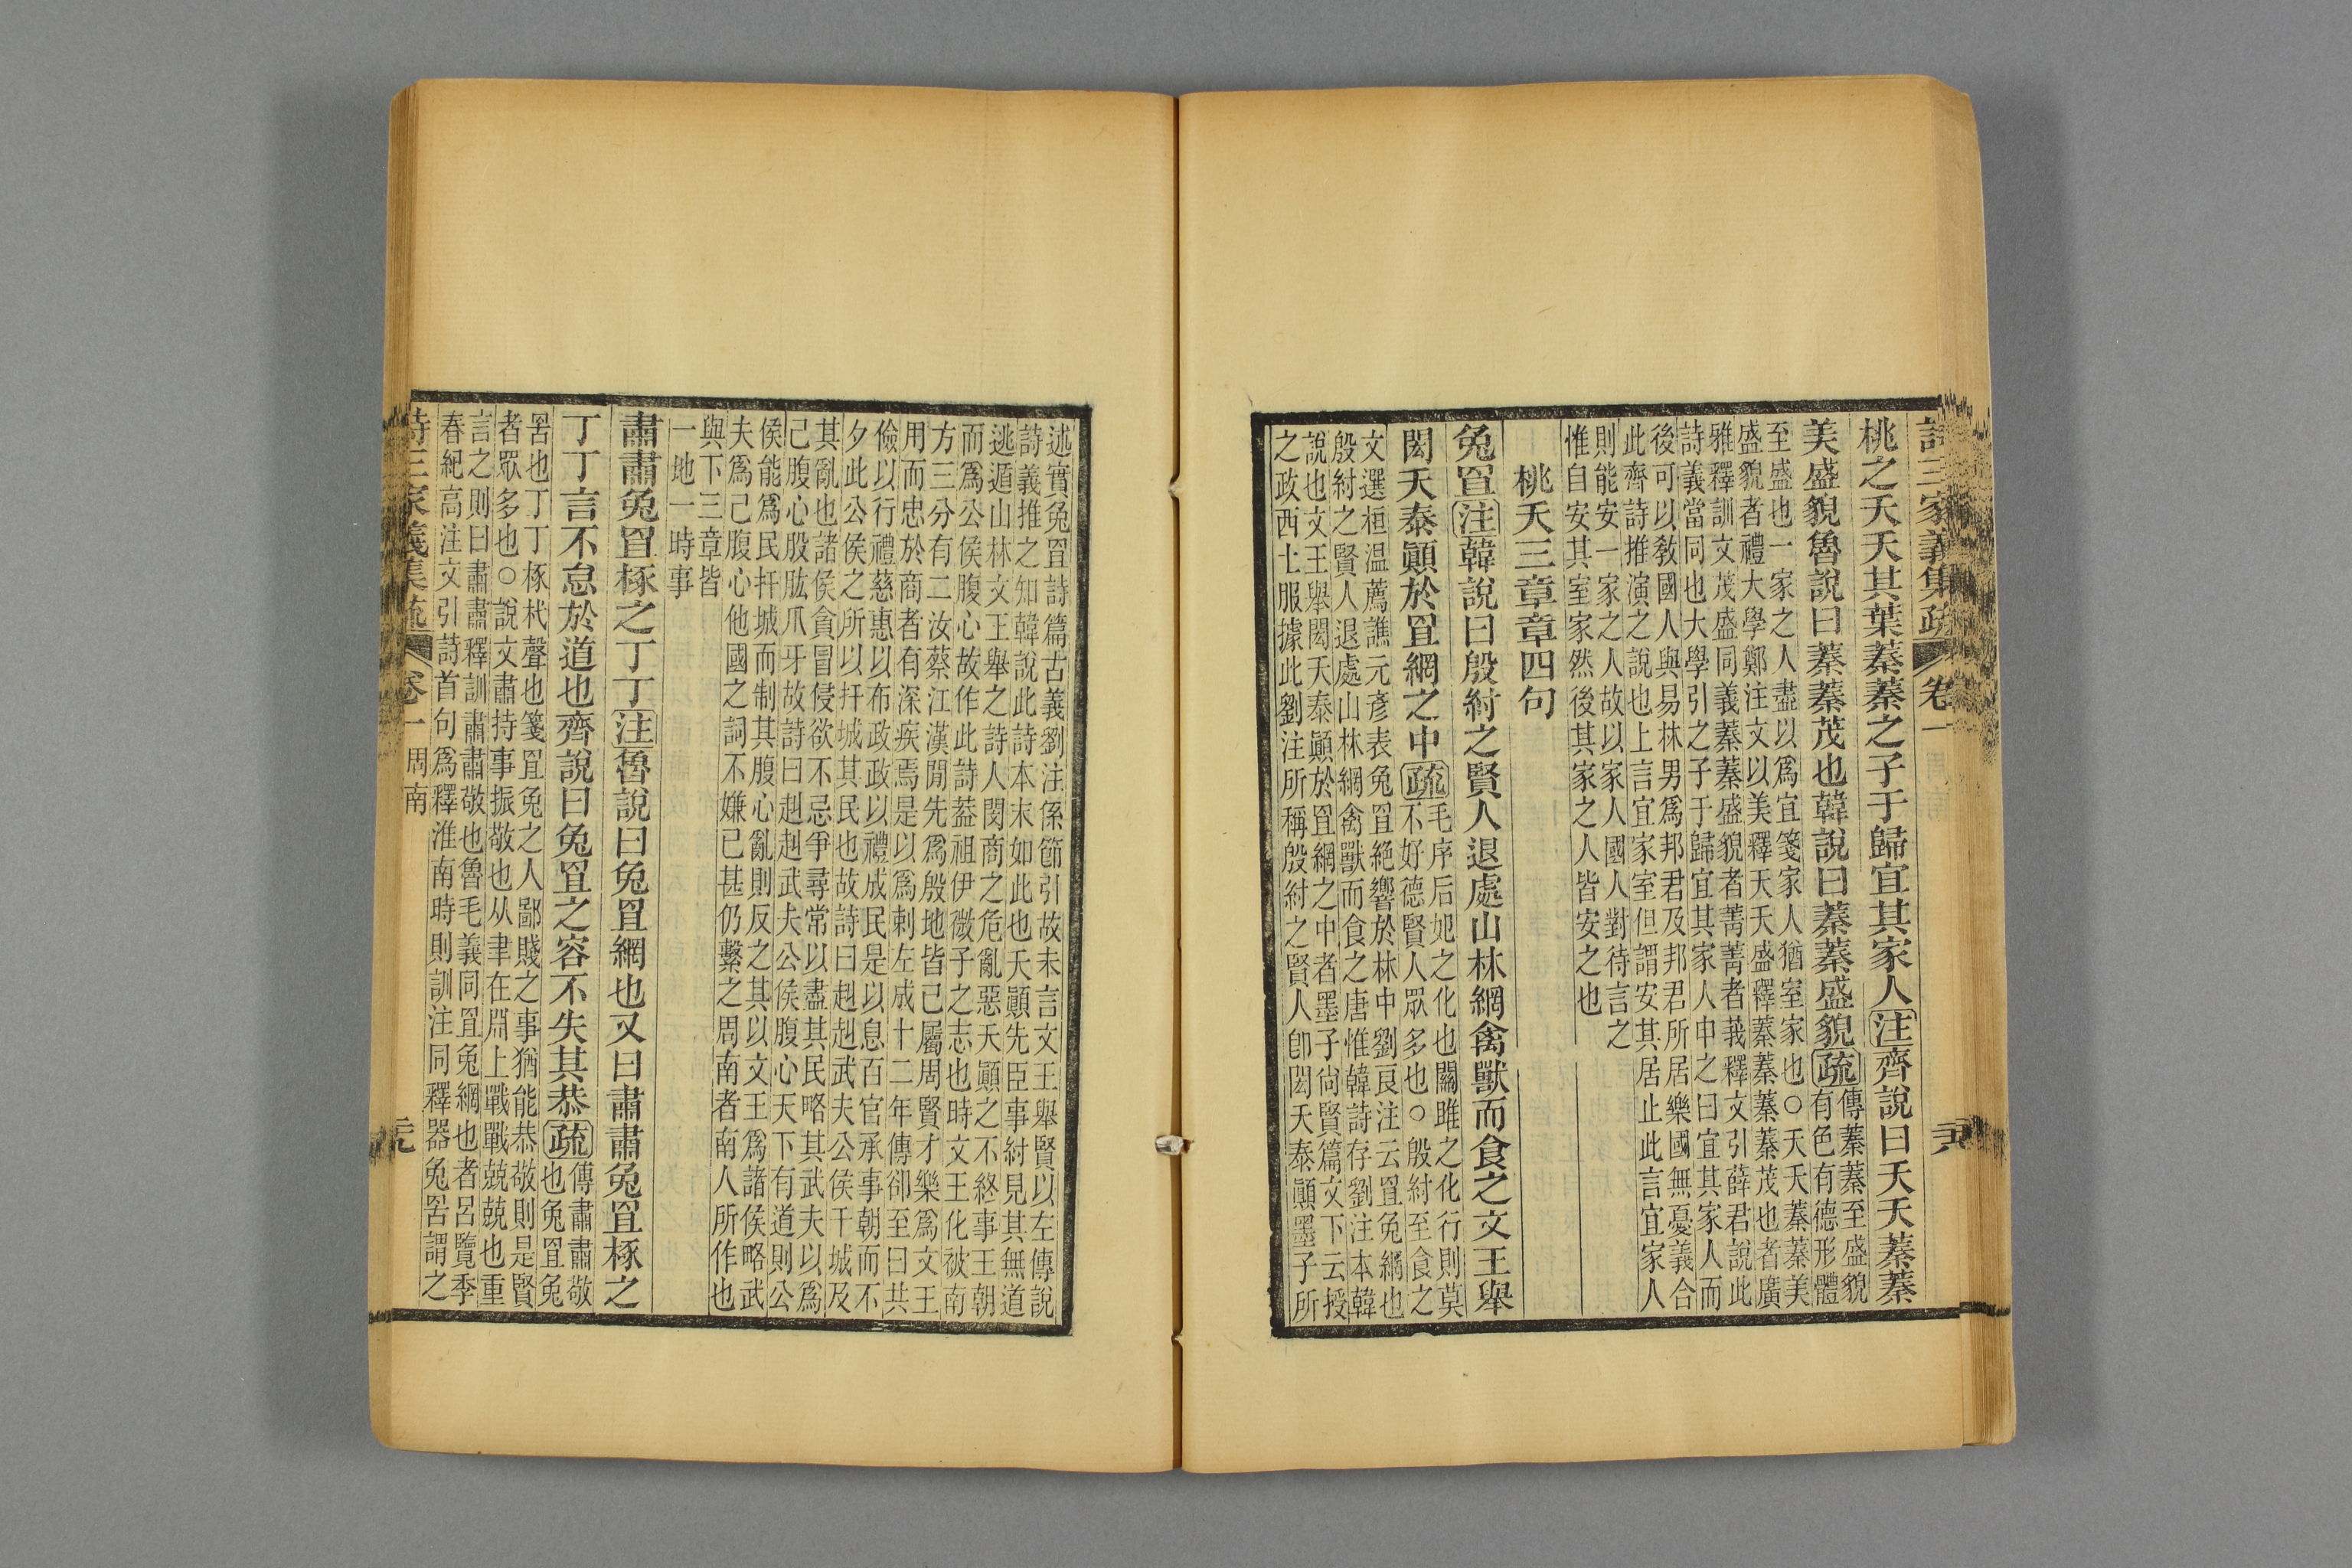 詩三家義集疏 卷一
桃之夭夭其葉蓁蓁之子于歸宜其家人注齊說曰夭夭蓁蓁
美盛貌魯說曰蓁蓁茂也韓說曰蓁蓁盛貌疏傳蓁蓁至盛貌
有色有德形體
至盛也一家之人盡以爲宜箋家人猶室家也○夭夭蓁蓁美
盛貌者禮大學鄭注文以美釋夭夭盛釋蓁蓁蓁蓁茂也者廣
雅釋訓文茂盛同義蓁蓁盛貌者菁菁者莪釋文引薛君說此
詩義當同也大學引之子于歸宜其家人申之曰宜其家人而
後可以教國人與易林男爲邦君及邦君所居樂國無憂義合
此齊詩推演之說也上言宜家室但謂安其居止此言宜家人
則能安一家之人故以家人國人對待言之
惟自安其室家然後其家之人皆安之也
桃夭三章章四句
兔罝注韓說曰殷紂之賢人退處山林網禽獸而食之文王舉
閎夭泰顚於罝網之中疏毛序后妃之化也關雎之化行則莫
不好德賢人眾多也○殷紂至食之
文選桓温薦譙元彥表兔罝絶響於林中劉良注云罝兔網也
殷紂之賢人退處山林網禽獸而食之唐惟韓詩存劉注本韓
說也文王舉閎夭泰顚於罝網之中者墨子尙賢篇文下云授
之政西土服據此劉注所稱殷紂之賢人卽閎夭泰顚墨子所
述實兔罝詩篇古義劉注係節引故未言文王舉賢以左傳說
詩義推之知韓說此詩本末如此也夭顚先臣事紂見其無道
逃遁山林文王舉之詩人閔商之危亂惡夭顚之不終事王朝
而爲公侯腹心故作此詩蓋祖伊微子之志也時文王化被南
方三分有二汝蔡江漢閒先爲殷地皆已屬周賢才樂爲文王
用而忠於商者有深疾焉是以爲刺左成十二年傳卻至曰共
儉以行禮慈惠以布政政以禮成民是以息百官承事朝而不
夕此公侯之所以扞城其民也故詩曰赳赳武夫公侯干城及
其亂也諸侯貪冒侵欲不忌爭尋常以盡其民略其武夫以爲
己腹心股肱爪牙故詩曰赳赳武夫公侯腹心天下有道則公
侯能爲民扞城而制其腹心亂則反之其以文王爲諸侯略武
夫爲己腹心他國之詞不嫌已甚仍繫之周南者南人所作也
與下三章皆
一地一時事
肅肅兔罝椓之丁丁注魯說曰兔罝網也又曰肅肅兔罝椓之
丁丁言不怠於道也齊說曰兔罝之容不失其恭疏傳肅肅敬
也兔罝兔
罟也丁丁椓杙聲也箋罝兔之人鄙賤之事猶能恭敬則是賢
者眾多也○說文肅持事振敬也从聿在𣶒上戰戰兢兢也重
言之則曰肅肅釋訓肅肅敬也魯毛義同罝兔網也者呂覽季
春紀高注文引詩首句爲釋淮南時則訓注同釋器兔罟謂之
詩三家義集疏 卷一 周南